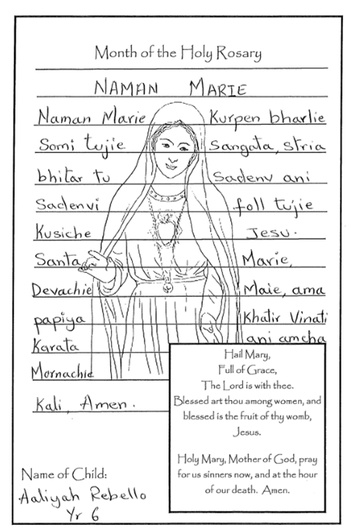 Month of the Holy Rosary
NAMAN MARIE
Naman Marie Kurpen bharlie
Somi tujie Sangata, stria
bhitar tu Sadenv ani
Sadenvi foll tujie
Kusiche Jesu.
Santa Marie,
Devachie Maie, ama
papiya Khatir Vinati
Karata ani amcha
Mornachie
Kali, Amen.
Hail Mary,
Full of Grace,
The Lord is with thee.
Blessed art thou among women, and
blessed is the fruit of thy womb,
Jesus.
Holy Mary, Mother of God, pray
for us sinners now, and at the hour
of our death. Amen.
Name of Child:
Aaliyah Rebello
Yr 6